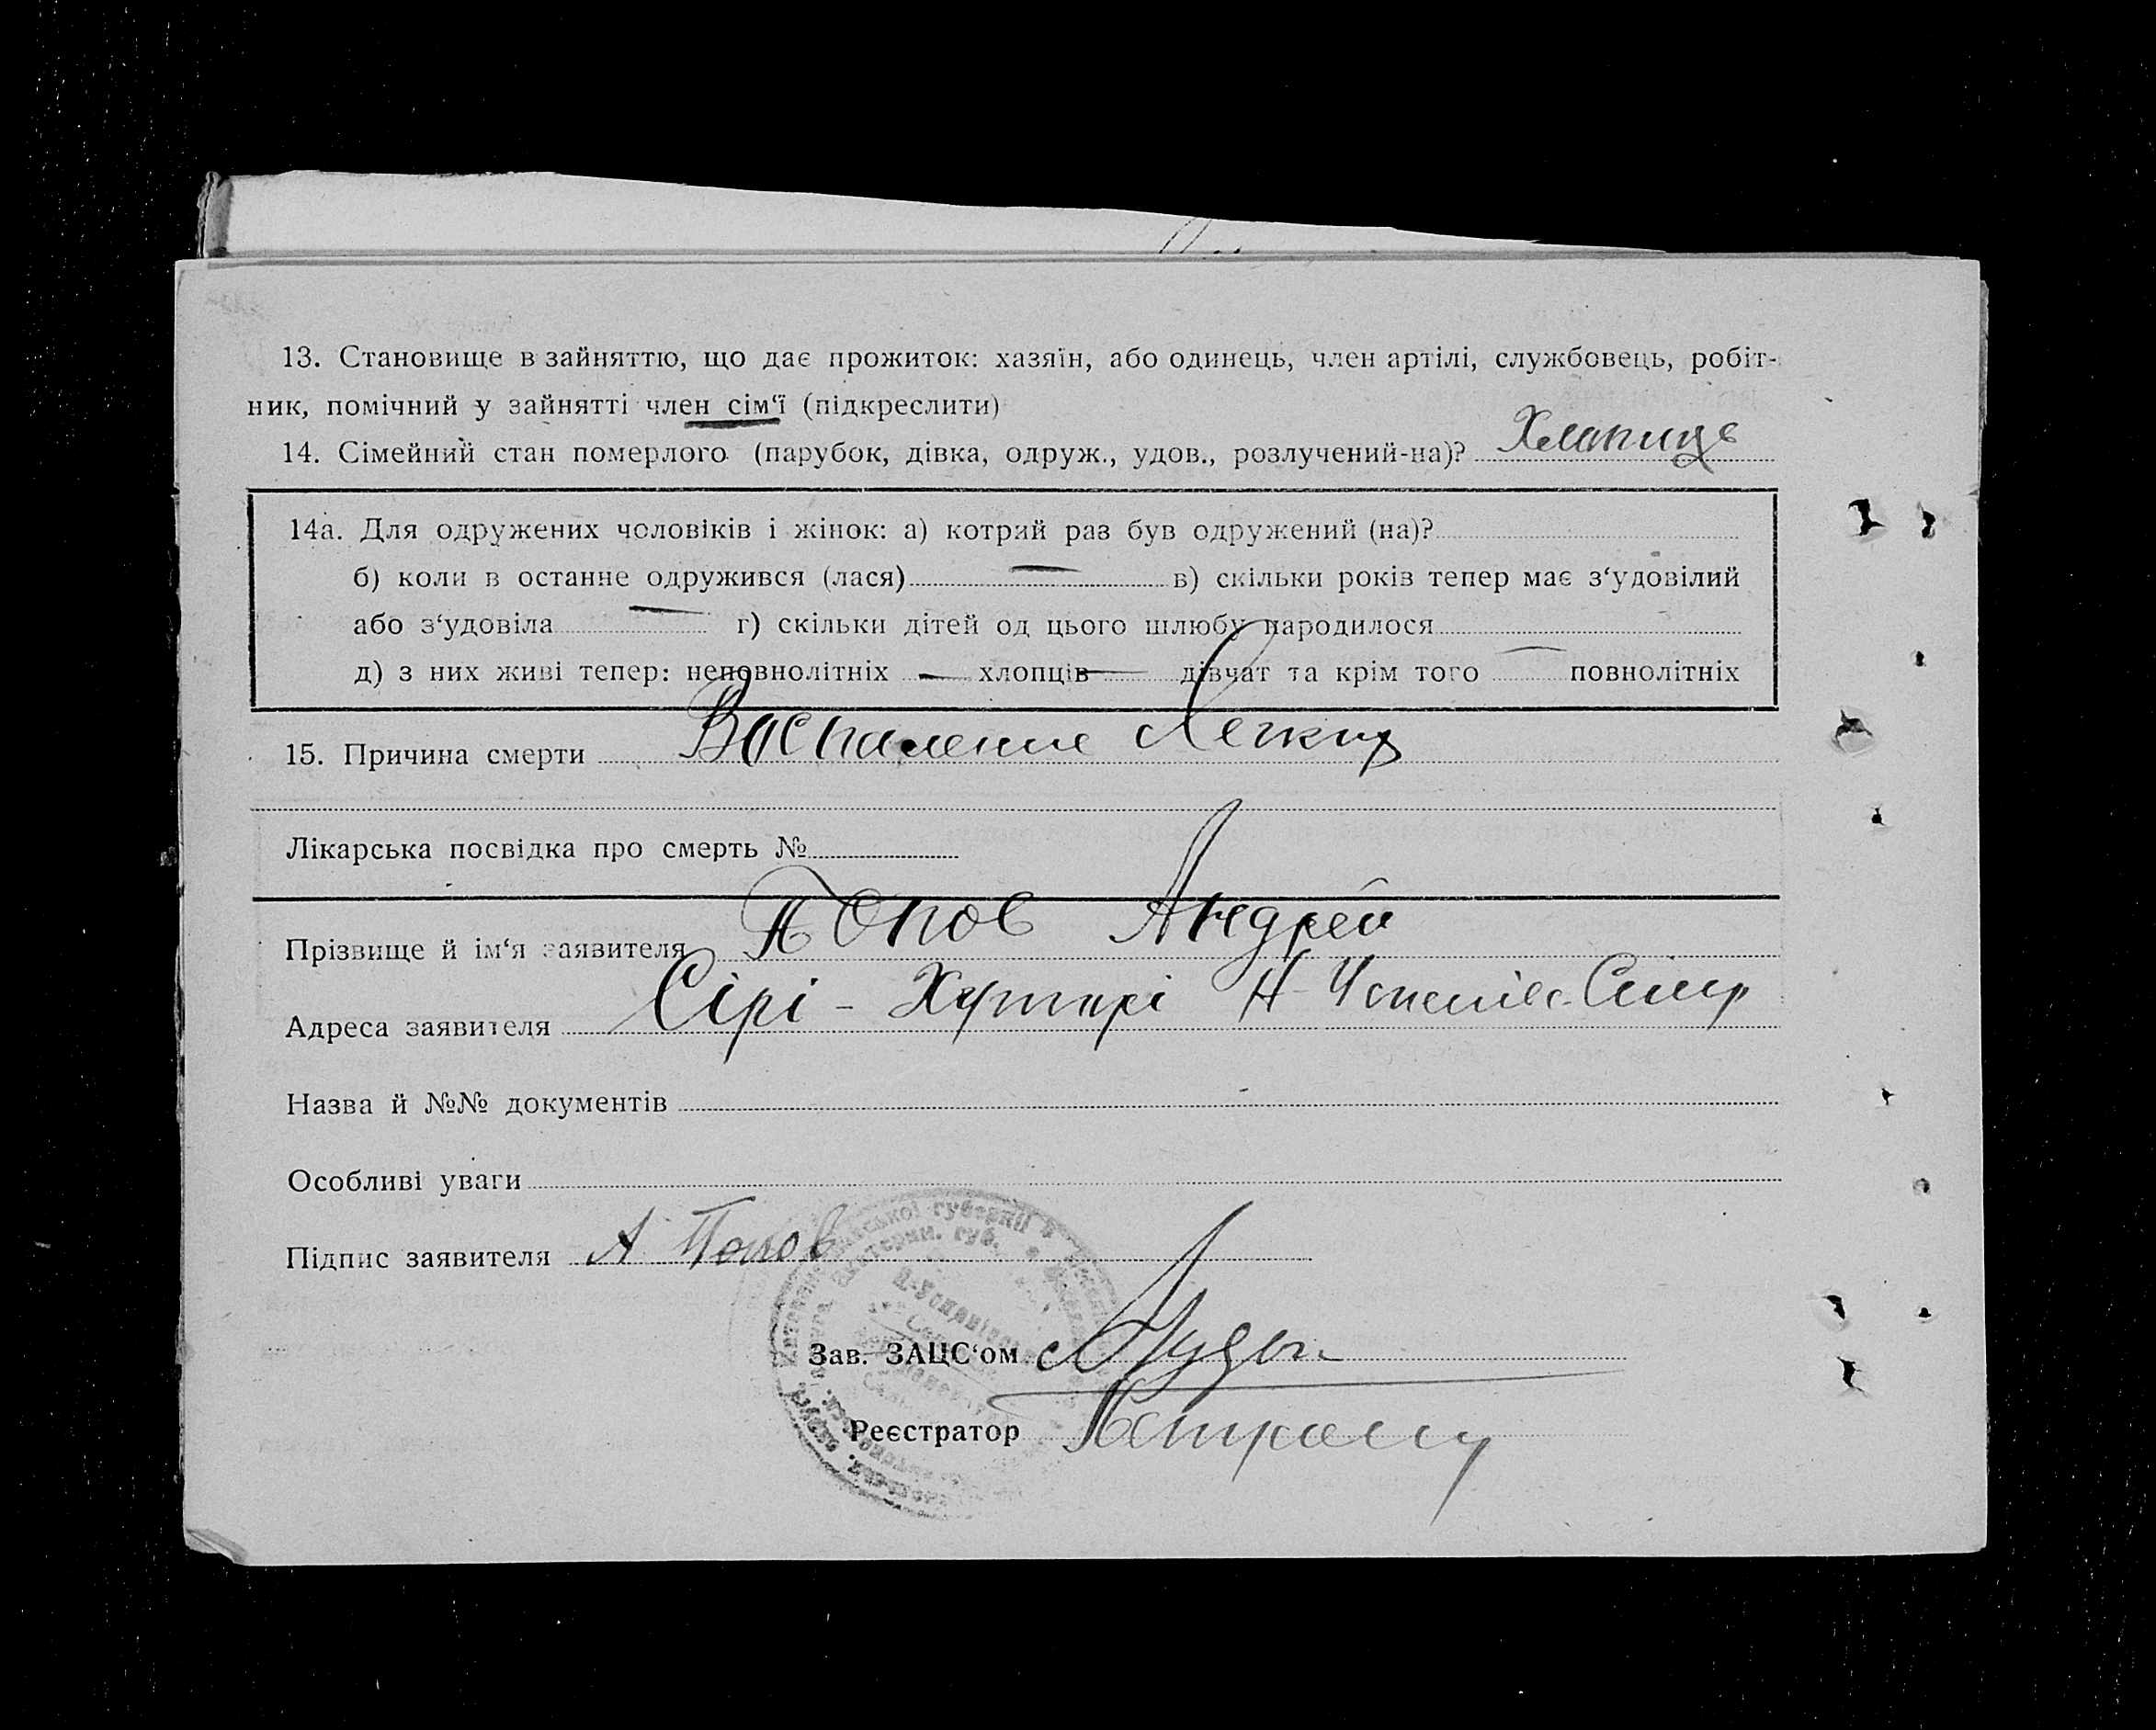 13. Становище в зайняттю, що дає прожиток: хазяїн, або одинець, член артілі, службовець, робіт-
ник, помічний у зайнятті член сім‘ї (підкреслити)
14. Сімейний стан померлого (парубок, дівка, одруж., удов., розлучений-на)?
14а. Для одружених чоловіків і жінок: а) котрий раз був одружений (на)?
б) коли в останнє одружився (лася) — в) скільки років тепер має з‘удовілий
або з‘удовіла — г) скільки дітей од цього шлюбу народилося
д) з них живі тепер: неповнолітніх — хлопців — дівчат та крім того — повнолітніх
15. Причина смерти Воспаление Легких
Лікарська посвідка про смерть №
Прізвище й ім‘я заявителя Попов Андрей
Адреса заявителя Сірі - Хуторі Н-Успенівс.
Назва й №№ документів
Особливі уваги
Підпис заявителя А Попов
Зав. ЗАЦС‘ом
Реєстратор